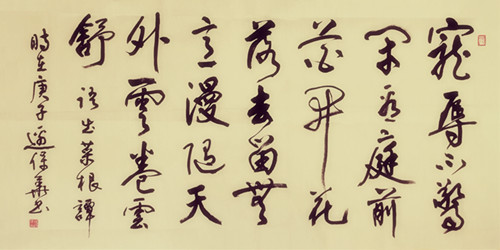 寵辱不驚
閑看庭前
花開花
落去留無
意漫隨天
外雲卷雲
舒 語出菜根譚
時在庚子 保華書